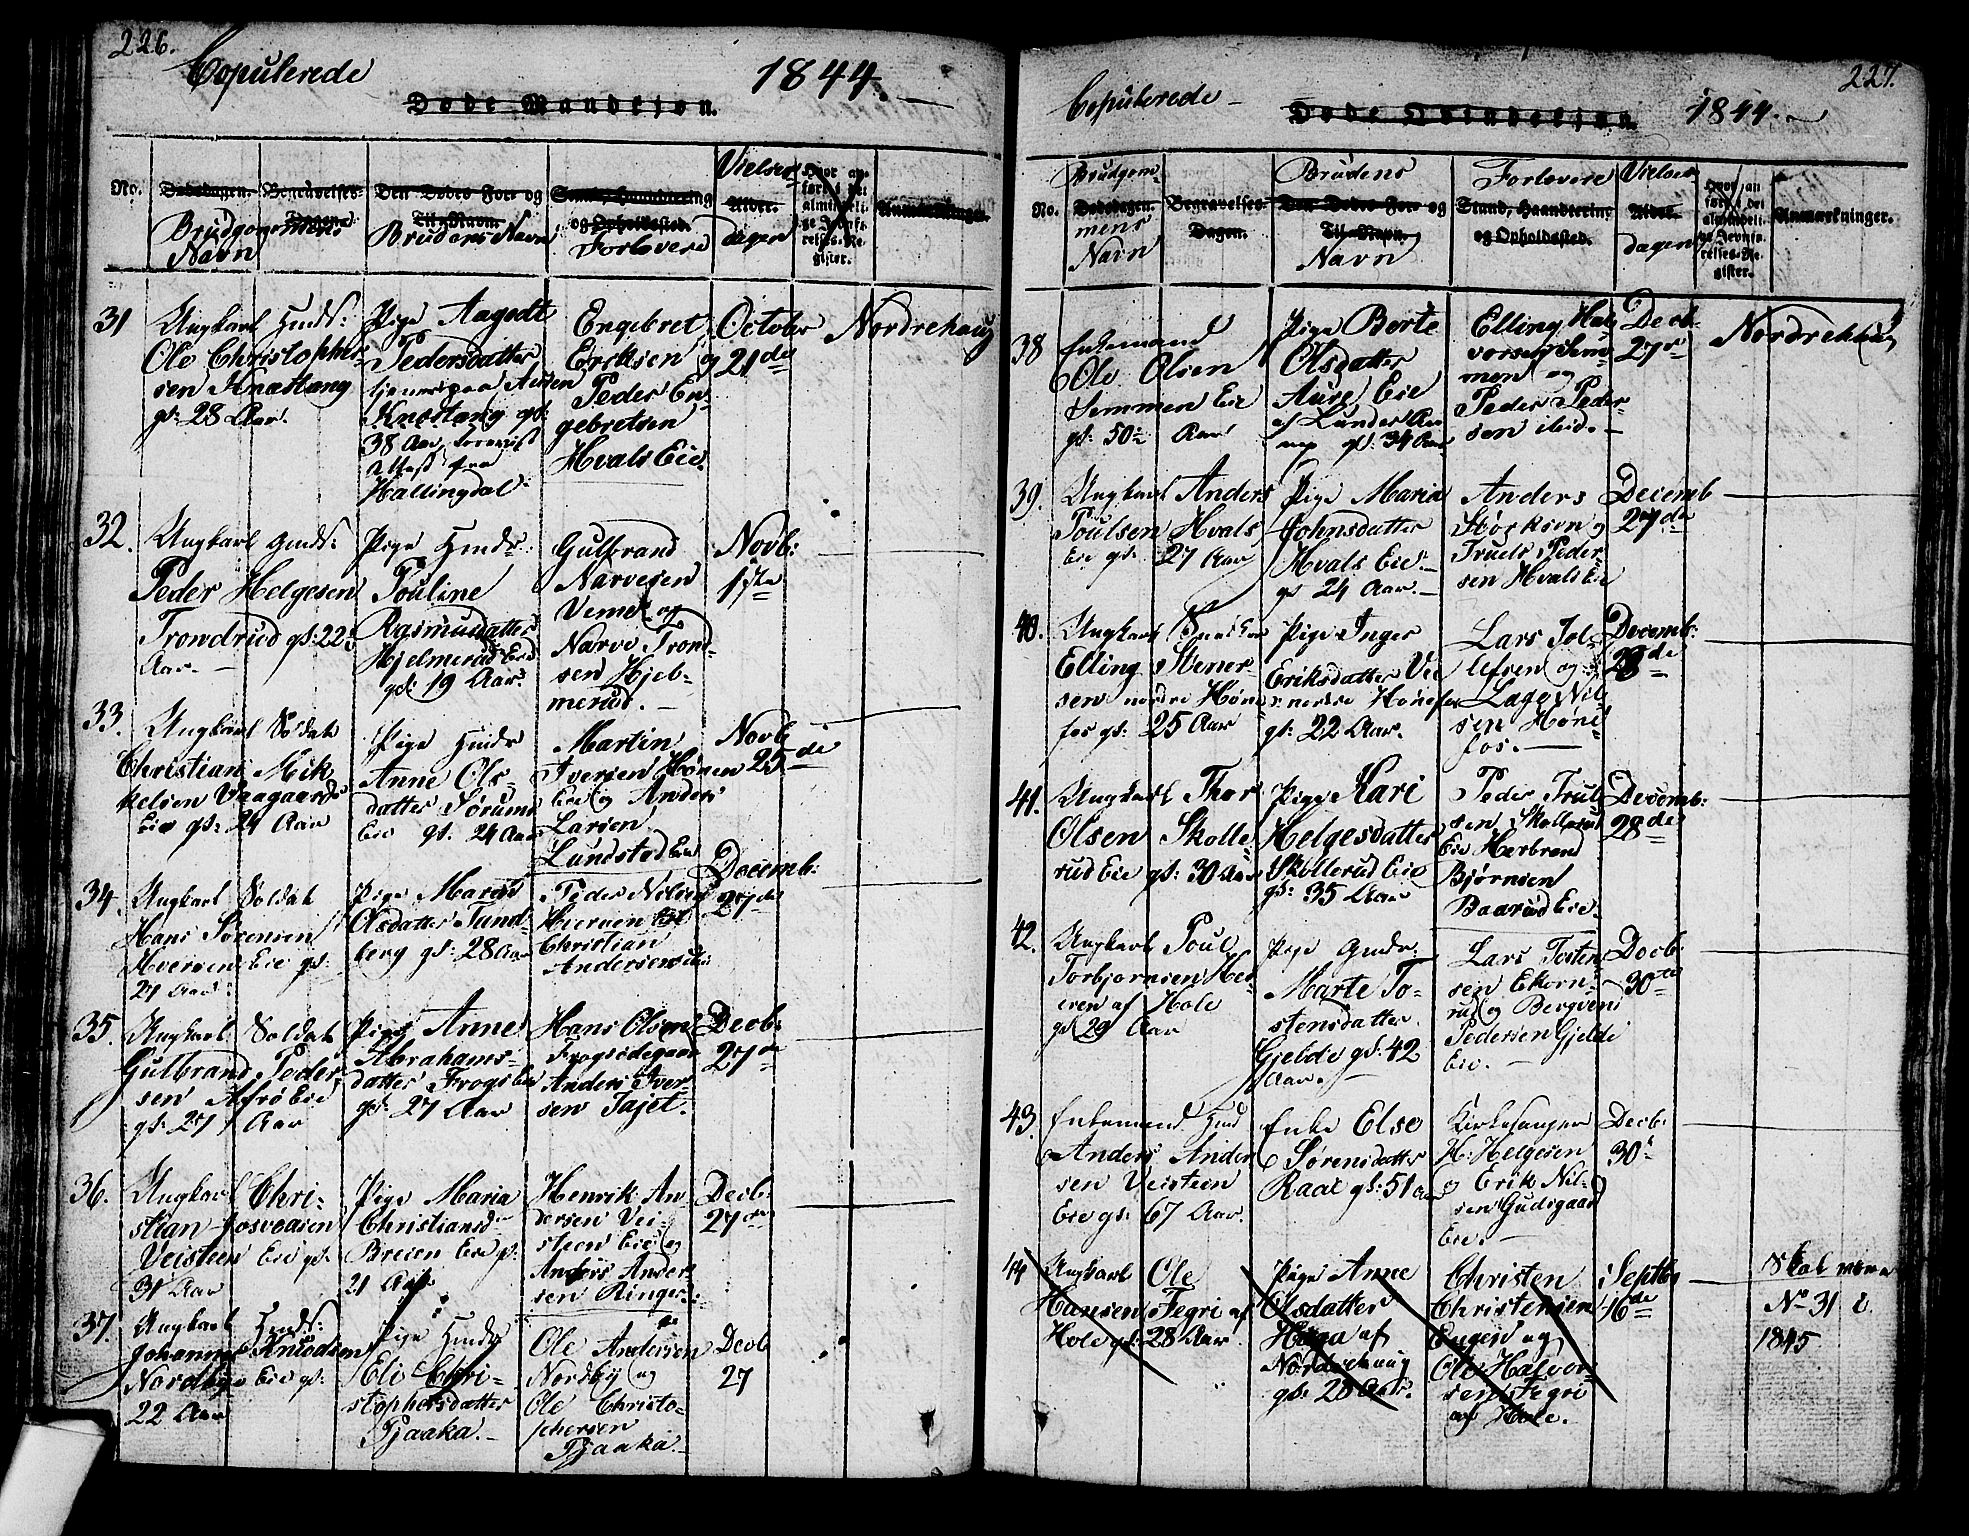 226.
Copulerede 1844.
Døde Mandkjøn.
No.
Dødsdagen. Begravelses-Dagen.
Den Dødes For- og Til-Navn.
Stand, Haandtering og Opholdssted.
Alder.
Hvor anført i det almindelige Jevnførelses-Register.
Anmærkninger.
Brudgommens Navn
Brudens Navn
Forlovere
Vielses dagen
31
Ungkarl
Ole Christopher-
sen Knestang
gl: 28 Aar.
Pige Aagodt
Pedersdatter
Knestang gl:
38 Aar
Hallingdal.
Engebret
Ericksen og
Peder En-
gebretsen
Hvals Eie.
October
21de
Nordrehaug
32.
Ungkarl Gmds:
Peder Helgesen
Trondrud gl: 22
Aar.
Pige Hmds:
Pouline
Rasmusdatter
Hjelmerud Eie
gl: 19 Aar
Gulbrand
Narvesen
Veme og
Narve Trond-
sen Hjel-
merud.
Novb:
1ste
33.
Ungkarl Soldat
Christian Mik-
kelsen Vaagaards
Eie gl: 24 Aar
Pige Hmds
Anne Ols-
datter Sørums
Eie gl. 24 Aar
Martin
Iversen Hønen
Eie og Anders
Larsen
Lundsted Eie
Novb
25de
34.
Ungkarl Soldat
Hans Sørensen
Hverven Eie gl:
27 Aar
Pige Maren
Olsdatter Tand-
berg gl: 28 Aar
Peder Nilsen
Hverven Eie
Christian
Andersen
Decemb:
27de
35.
Ungkarl Soldat
Gulbrand Peder-
sen Eie
gl: 27 Aar
Pige Anne
Abrahams-
datter Frogs Eie
gl. 27 Aar
Hans Olsen
Anders Iver-
sen Tajet.
Decb:
27de
36.
Ungkarl Chri-
stian Josvasen
Veisteen Eie gl.
31 Aar
Pige Maria
Christiansd
Breien Eie gl:
21 Aar
Henrik An-
dersen Vei-
steen Eie og
Anders Ander-
sen Ringer
Decb:
27de
37.
Ungkarl Hmds:
Johannes Knudsen
Nordbye Eie gl:
22 Aar
Pige Hmds
Eli Chri-
stophersdatter
Pjaaka.
Ole Andersen
Nordby og
Ole Christo-
phersen
Pjaaka.
Decb
27
227.
Copulerede 1844.
Døde Qvindekjøn.
No.
Dødsdagen. Begravelses-Dagen.
Den Dødes For- og Til-Navn.
Stand, Haandtering og Opholdssted.
Alder.
Hvor anført i det almindelige Jevnførelses-Register.
Anmærkninger.
Brudgommens Navn
Brudens Navn
Forlovere
Vielses dagen
38
Enkemand
Ole Olsen
Semmen Eie
gl. 50 Aar
Pige Berte
Olsdatter
Aure Eie
gl: 34 Aar
Elling Hal-
vorsen Sem-
men og
Peder Peder-
sen ibid.
Decb.
27de
Nordrehaug
39.
Ungkarl Anders
Poulsen Hvals
Eie gl: 27 Aar
Pige Maria
Johnsdatter
Hvals Eie
gl 24 Aar.
Anders
og
Truels Peder-
sen Hvals Eie
Decemb
27de
40.
Ungkarl
Elling Stener-
sen nordre Høne-
fos gl: 25 Aar
Pige Inger
Eriksdatter
nordre Hønefos
gl. 22 Aar.
Lars Tol-
lefsen og
Lage Nil-
sen Høne-
fos.
Decemb:
28de
41.
Ungkarl Thor
Olsen Skolle-
rud Eie gl: 30 Aar
Pige Kari
Helgesdatter
Skollerud Eie
gl: 35 Aar
Peder Trul-
sen Skollerud
Eie Herbrand
Bjørnsen
Baarud Eie
Decemb:
28de
42.
Ungkarl Poul
Torbjornsen
af Hole
gl 29 Aar
Pige Gmds
Marte To-
stensdatter
Gjelde gl. 42
Aar.
Lars Tosten-
sen Ekorn-
rud og Bergven
Pedersen Gjelde
Eie.
Decb:
30te
43.
Enkemand Hmd
Anders Ander-
sen Veisteen
Eie gl: 67 Aar.
Enke Else
Sørensdatter
Raae gl: 51 Aar
Kirkesanger
H. Helgesen
og Erik Nil-
sen Gudsgaard
Eie.
Decb:
30t
44
Ungkarl Ole
Hansen Fegri af
Hole gl: 28 Aar
Pige Anne
Olsdatter
af
Nordrehaug
gl: 28 Aar.
Christen
Christensen
og
Ole Halvor-
sen Fegri
af Hole.
Septbr
16de
Skal være
No 31 i
1845